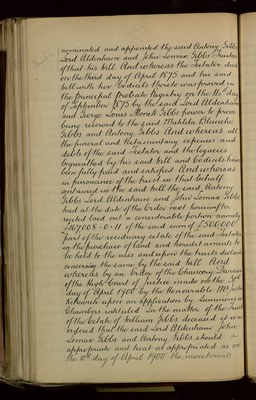 nominated and appointed the said Antony Gibbs
Lord Aldenham and John Lomax Gibbs Trustees
of that his will And whereas the Testator died
on the third day of April 1875 and his said
will with two Codicils thereto was proved in
the Principal Probate Registry on the 11th day
of September 1875 by the said Lord Aldenham
and George Louis Monck Gibbs power to prove
being reserved to the said Matilda Blanche
Gibbs and Antony Gibbs And whereas all
the funeral and testamentary expenses and
debts of the said Testator and the legacies
bequeathed by his said will and codicils have
been fully paid and satisfied And whereas
in pursuance of the trust in that behalf
contained in the said will the said Antony
Gibbs Lord Aldenham and John Lomax Gibbs
had at the date of the Order next hereinafter
recited laid out a considerable portion namely
£467,008 · 0 · 11 of the said sum of £500,000
part of the residuary estate of the said testator
in the purchase of land and hereditaments to
be held to the uses and upon the trusts declared
concerning the same by the said will And
whereas by an Order of the Chancery Division
of the High Court of Justice made on the
day of April 1900 by the Honourable Mr Justice
Kekewich upon an application by Summons in
Chambers intituled In the matter of the trusts
of the Estate of William Gibbs deceased it was
ordered that the said Lord Aldenham John
Lomax Gibbs and Antony Gibbs should
appropriate and treat as appropriated as on
the day of April 1900 the investments